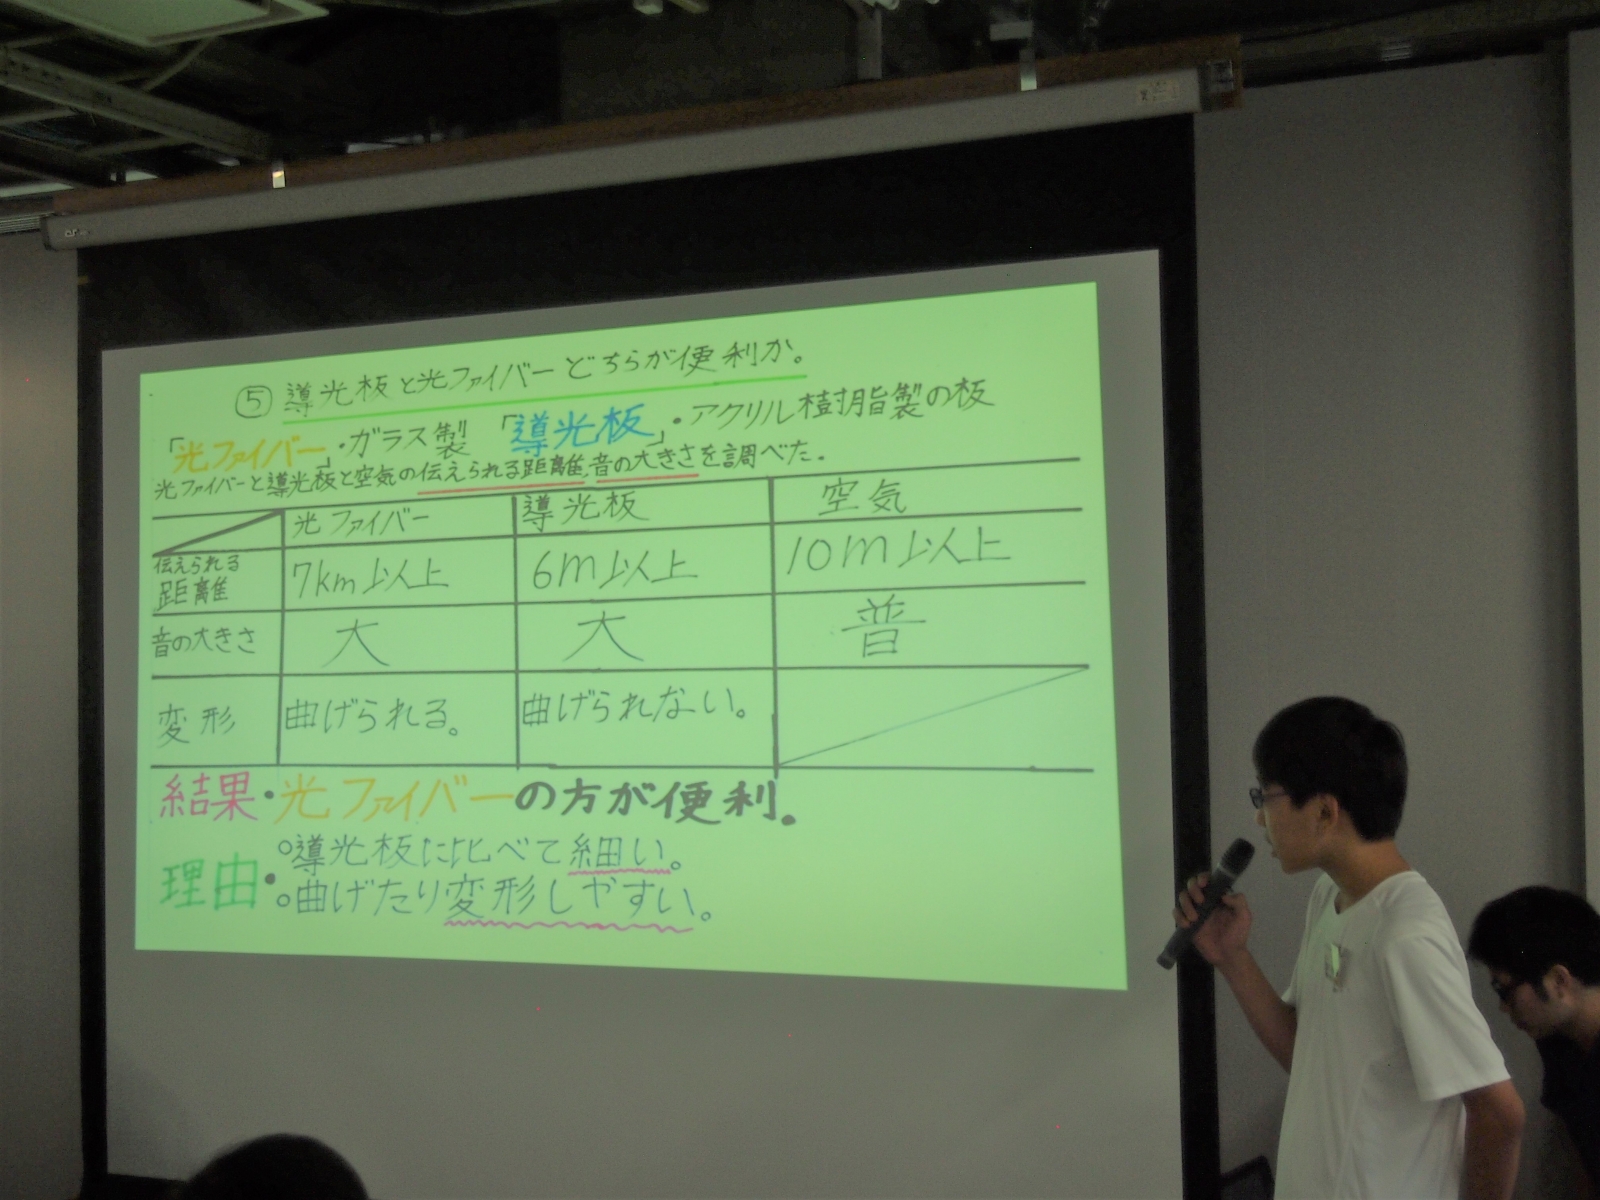 ⑤ 導光板と光ファイバーどちらが便利か。
「光ファイバー」・ガラス製 「導光板」・アクリル樹脂製の板
光ファイバーと導光板と空気の伝えられる距離,音の大きさを調べた。
光ファイバー 導光板 空気
伝えられる距離 7km以上 6m以上 10m以上
音の大きさ 大 大 普
変形 曲げられる。 曲げられない。
結果・光ファイバーの方が便利。
理由・ ○導光板に比べて細い。
○曲げたり変形しやすい。